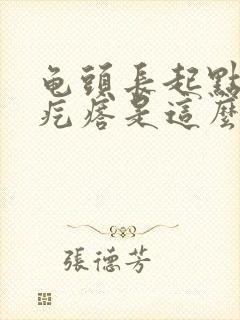 龟頭長起點
疙瘩是這麼
張德芳